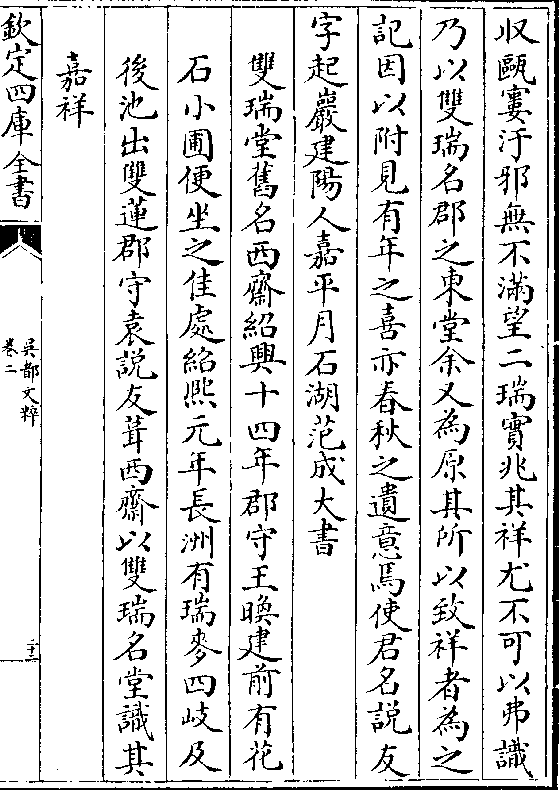 収甌窶汙邪無不滿望二瑞實兆其祥尤不可以弗識
乃以雙瑞名郡之東堂余又為原其所以致祥者為之
記因以附見有年之喜亦春秋之遺意焉使君名説友
字起巖建陽人嘉平月石湖范成大書
雙瑞堂舊名西齋紹興十四年郡守王㬇建前有花
石小圃便坐之佳處紹熙元年長洲有瑞麥四岐及
後池出雙蓮郡守袁説友葺西齋以雙瑞名堂識其
嘉祥
欽定四庫全書
吳都文粹
卷二
二十一